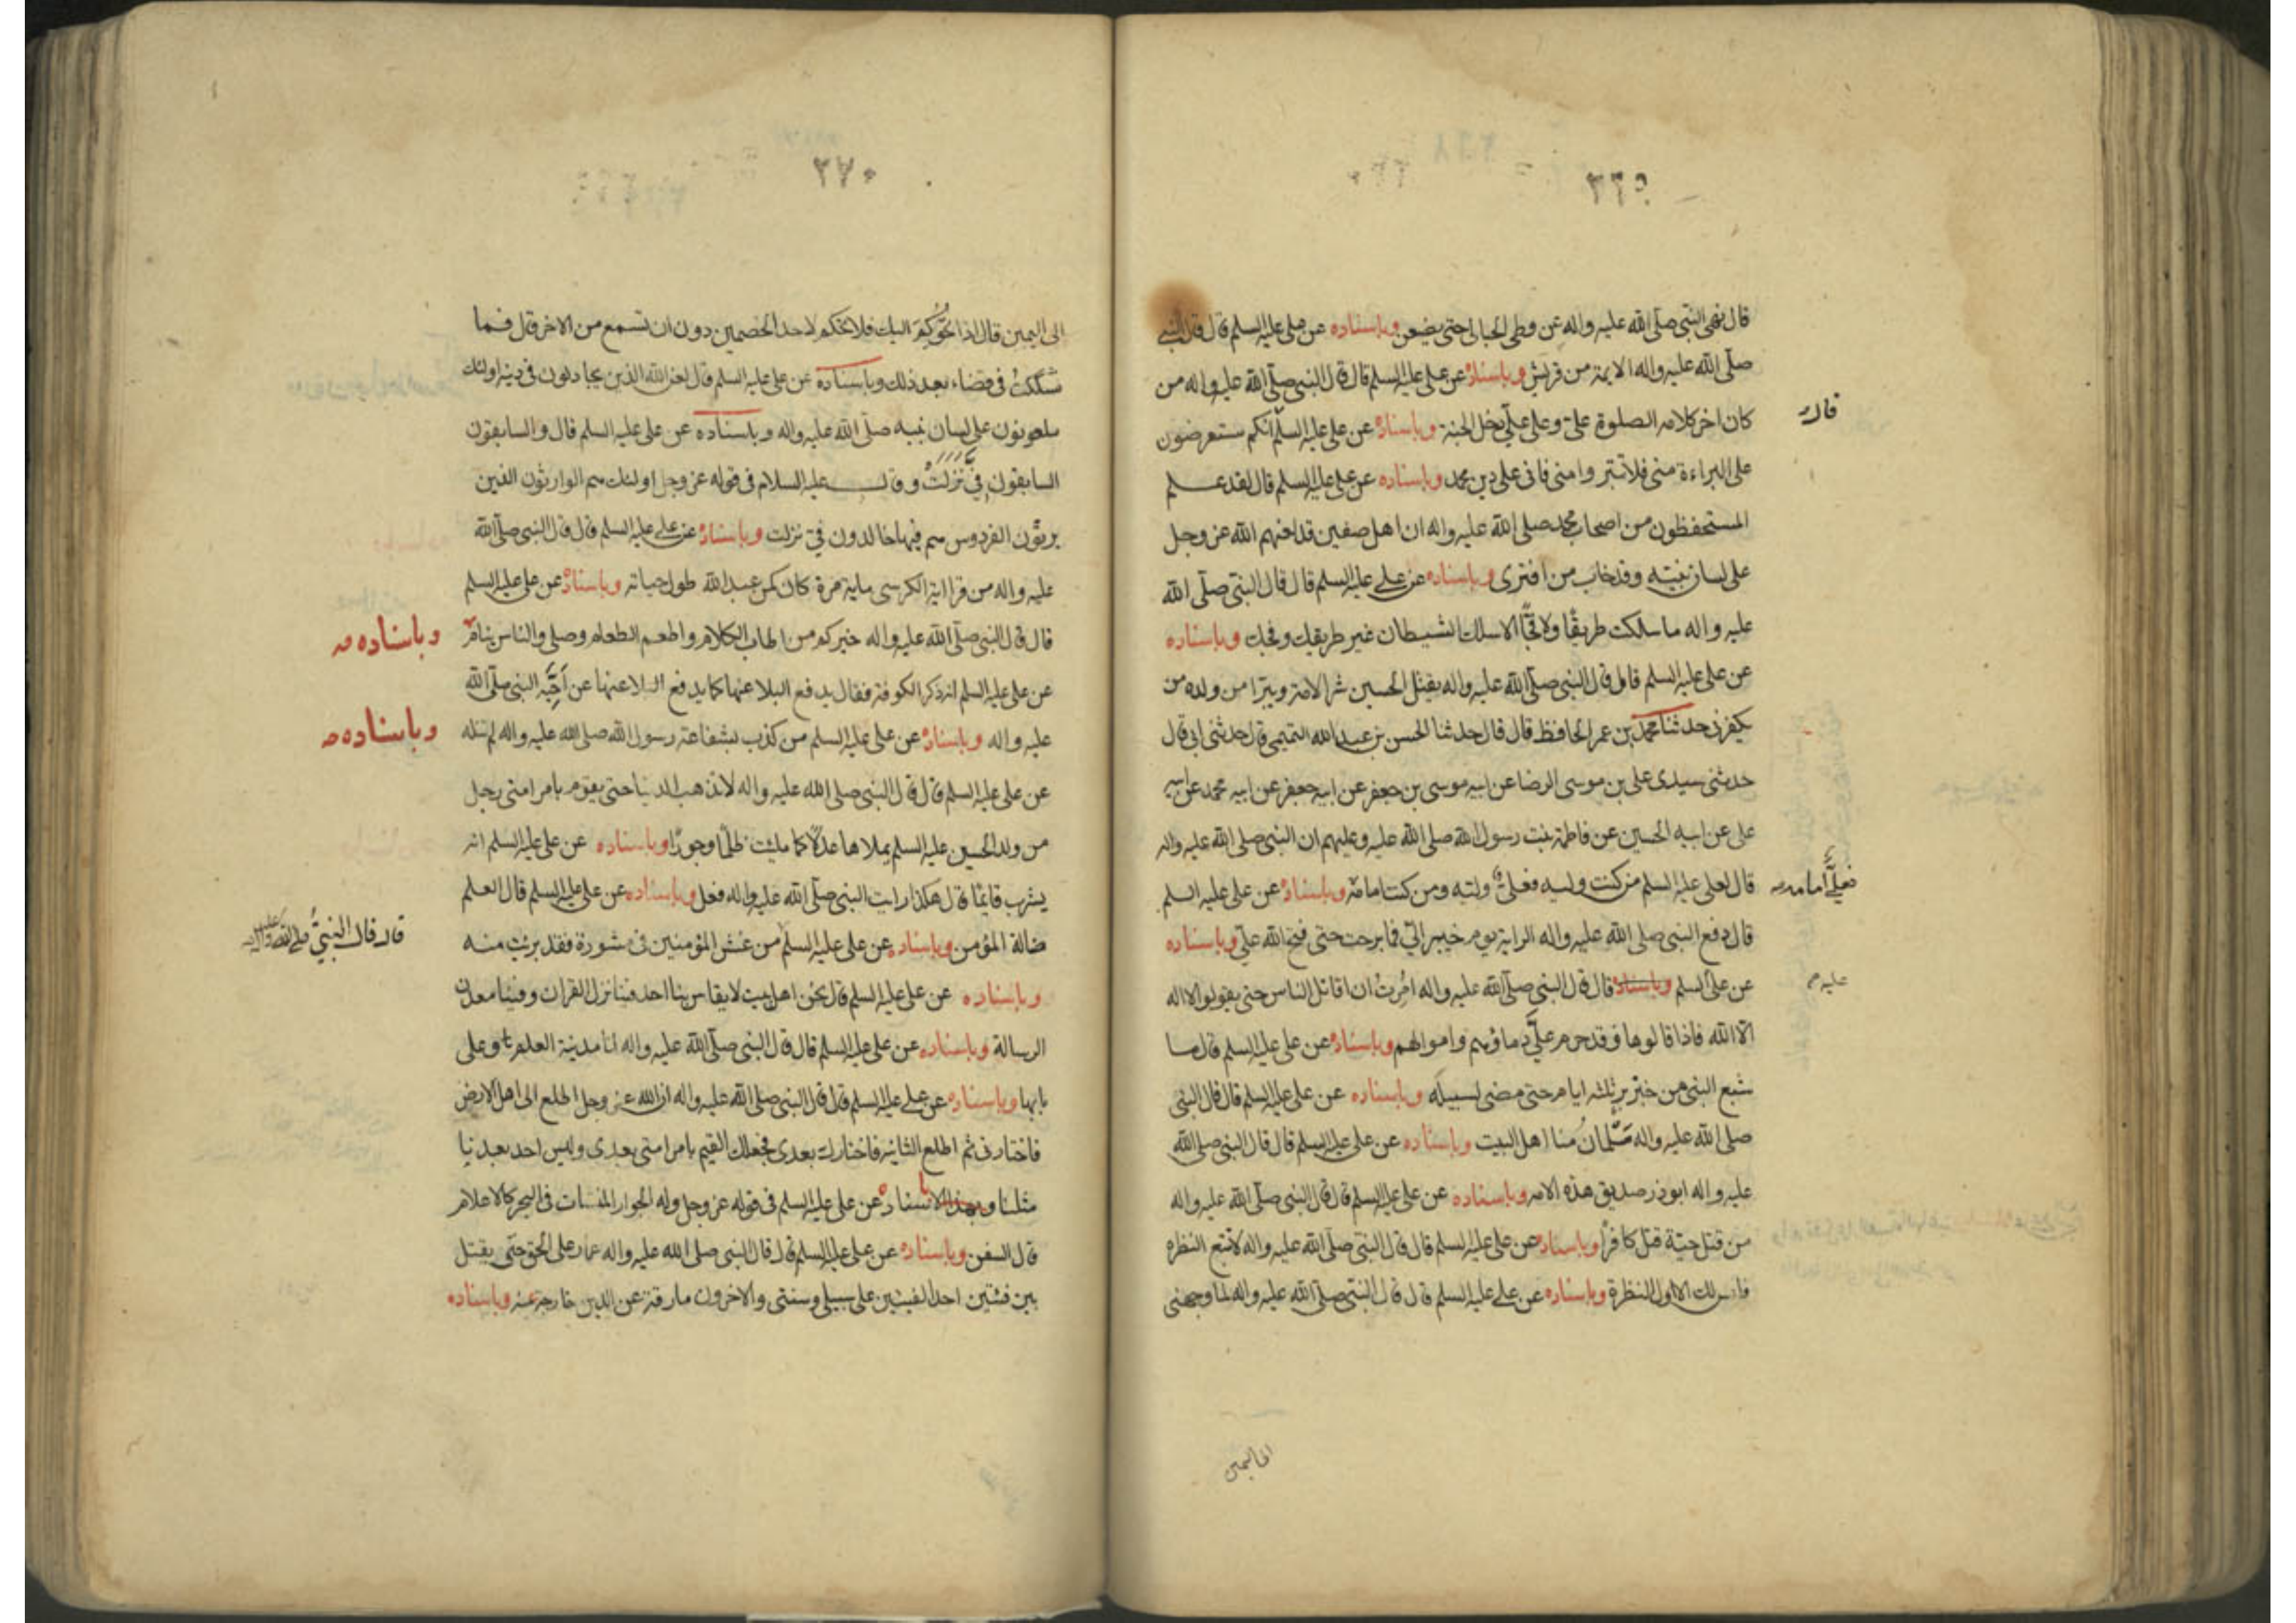 ٣٦٩
قال نهى النبي صلّى الله عليه واله عن وطى الحبالى حتى يضعن وباسناده عن على عليه السلم قال قال النبي
صلّى الله عليه واله الايمة من قريش وباسناده عن على عليه السلم قال قال النبي صلّى الله عليه واله من
كان اخر كلامه الصلوة علىّ وعلى علىّ يدخل الجنة وباسناده عن على عليه السلم انكم ستعرضون
قال
على البراءة منى فلا تتبروا منى فانى على دين محمد وباسناده عن على عليه السلم قال لقد علم
المستحفظون من اصحاب محمد صلى الله عليه واله ان اهل صفين قد لعنهم الله عز وجل
على لسان نبيّه وقد خاب من افترى وباسناده عن على عليه السلم قال قال النبي صلّى الله
عليه واله ما سلكت طريقًا ولا فجًّا الا سلك الشيطان غير طريقك وفجك وباسناده
عن على عليه السلم قال قال النبي صلّى الله عليه واله يقتل الحسين شر الامة ويتبرا من ولده من
يكفر بى حدثنا محمد بن عمر الحافظ قال قال حدثنا الحسن بن عبد الله التميمى قال حدثنى ابى قال
حدثنى سيدى على بن موسى الرضا عن ابيه موسى بن جعفر عن ابيه جعفر عن ابيه محمد عن ابيه
على عن ابيه الحسين عن فاطمة بنت رسول الله صلى الله عليه وعليهم ان النبي صلى الله عليه واله
قال لعلى عليه السلم من كنت وليه فعلى وليه ومن كنت امامه وباسناده عن على عليه السلم
فعلىّ امامه
قال دفع النبي صلى الله عليه واله الراية يوم خيبر الىّ فما برحت حتى فتح الله علىّ وباسناده
عن على السلم وباسناده قال قال النبي صلّى الله عليه واله امُرت ان اقاتل الناس حتى يقولوا لا اله
عليه
الّا الله فاذا قالوها فقد حرم علىّ دماؤهم واموالهم وباسناده عن على عليه السلم قال ما
شبع النبي من خبز برّ ثلثه ايام حتى مضى لسبيله وباسناده عن على عليه السلم قال قال النبي
صلى الله عليه واله سَلمانُ منا اهل البيت وباسناده عن على عليه السلم قال قال النبي صلى الله
عليه واله ابوذر صديق هذه الامه وباسناده عن على عليه السلم قال قال النبي صلّى الله عليه واله
من قتل حيّة قتل كافرًا وباسناده عن على عليه السلم قال قال النبي صلّى الله عليه واله لا تتبع النظره
فليس لك الا اول النظرة وباسناده عن على عليه السلم قال قال النبي صلّى الله عليه واله لما وجهنى
الى اليمن
٣٧٠
الى اليمين قال اذا تحُوكِمَ اليك فلا تحكم لاحد الخصمين دون ان تسمع من الاخر قال فما
شككتُ فى قضاء بعد ذلك وباسناده عن على عليه السلم قال لعن الله الذين يجادلون فى دينه اولئك
ملعونون على لسان نبيه صلّى الله عليه واله وباسناده عن على عليه السلم قال والسابقون
السابقون فىَّ نَزَلَتْ وقال عليه السلام فى قوله عز وجل اولئك هم الوارثون الذين
يرثون الفردوس هم فيها خالدون فىّ نزلت وباسناده عن على عليه السلم قال قال النبي صلّى الله
عليه واله من قرا اية الكرسى ماية مرة كان كمن عبد الله طول حياته وباسناده عن على عليه السلم
قال قال النبي صلّى الله عليه واله خيركم من اطاب الكلام واطعم الطعام وصلى والناس نيام
وباسناده
عن على عليه السلم انه ذكر الكوفة فقال يدفع البلا عنها كما يدفع البلا عنها عن اَخبيه النبي صلّى الله
عليه واله وباسناده عن على عليه السلم من كذب بشفاعة رسول الله صلى الله عليه واله لم تنله
وباسناده
عن على عليه السلم قال قال النبي صلى الله عليه واله لا تذهب الدنيا حتى يقوم بامر امتى رجل
من ولد الحسين عليه السلم يملاها عدلًا كما ملئت ظلمًا وجورًا وباسناده عن على عليه السلم انه
يشرب قايمًا قال هكذا رايت النبي صلّى الله عليه واله فعل وباسناده عن على عليه السلم قال العلم
ضالة المؤمن وباسناده عن على عليه السلم من غش المؤمنين فى مشورة فقد برئت منه
قال قال النبيُّ صلى الله عليه واله
وباسناده عن على عليه السلم قال نحن اهل بيت لا يقاس بنا احد فينا نزل القران وفينا معدن
الرسالة وباسناده عن على عليه السلم قال قال النبي صلّى الله عليه واله انا مدينة العلم وعلى
بابها وباسناده عن على عليه السلم قال قال النبي صلى الله عليه واله ان الله عز وجل اطلع الى اهل الارض
فاختارنى ثم اطلع الثانيه فاختارك بعدى فجعلك القيم بامر امتى بعدى وليس احد بعدنا
مثلنا وباسناده عن على عليه السلم فى قوله عز وجل وله الجوار المنشات فى البحر كالاعلام
قال السفن وباسناده عن على عليه السلم قال قال النبي صلى الله عليه واله عمار على الحق حتى يقتل
بين فئتين احد الفئتين على سبيلى وسنتى والاخرون مارقة عن الدين خارجة عنه وباسناده